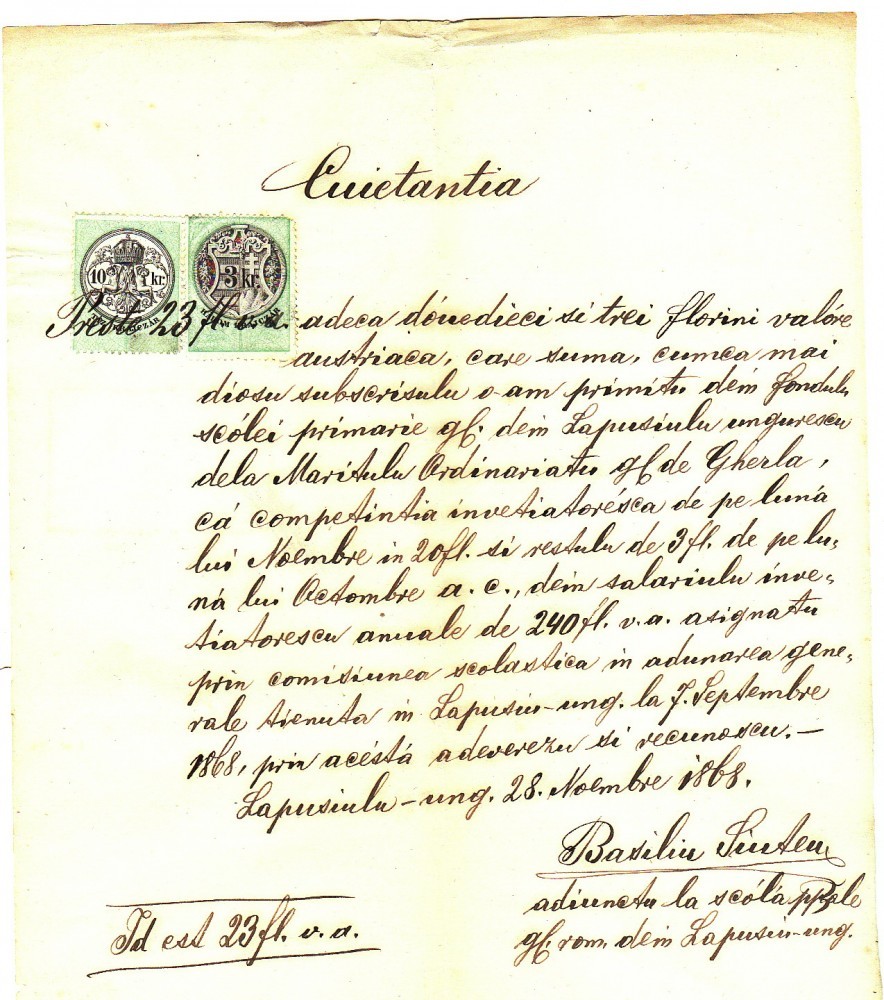 Cuietantia
10 kr.
3 kr.
Prest 23 fl. v. a. adeca dóuedieci si trei florini valóre
austriaca, care suma, cumca mai
diosu subscrisulu o-am primitu dein fondulu
scólei primarie gl. dein Lapusiulu ungurescu
dela Maritulu Ordinariatu gl. de Gherla,
cá competintia invetiatorésca de pe luná
lui Noembre in 20 fl. si restulu de 3 fl. de pe lu-
ná lui Octombre a. c., dein salariulu inve-
tiatorescu anuale de 240 fl. v. a. asignatu
prin comisiunea scolastica in adunarea gene-
rale tienuta in Lapusiu-ung. la 7. Septembre
1868, prin acéstá adeverezu si recunoscu. —
Lapusiulu-ung. 28. Noembre 1868.
Basiliu
adiunctu la scóla
gl. rom. dein Lapusiu-ung.
Id est 23 fl. v. a.